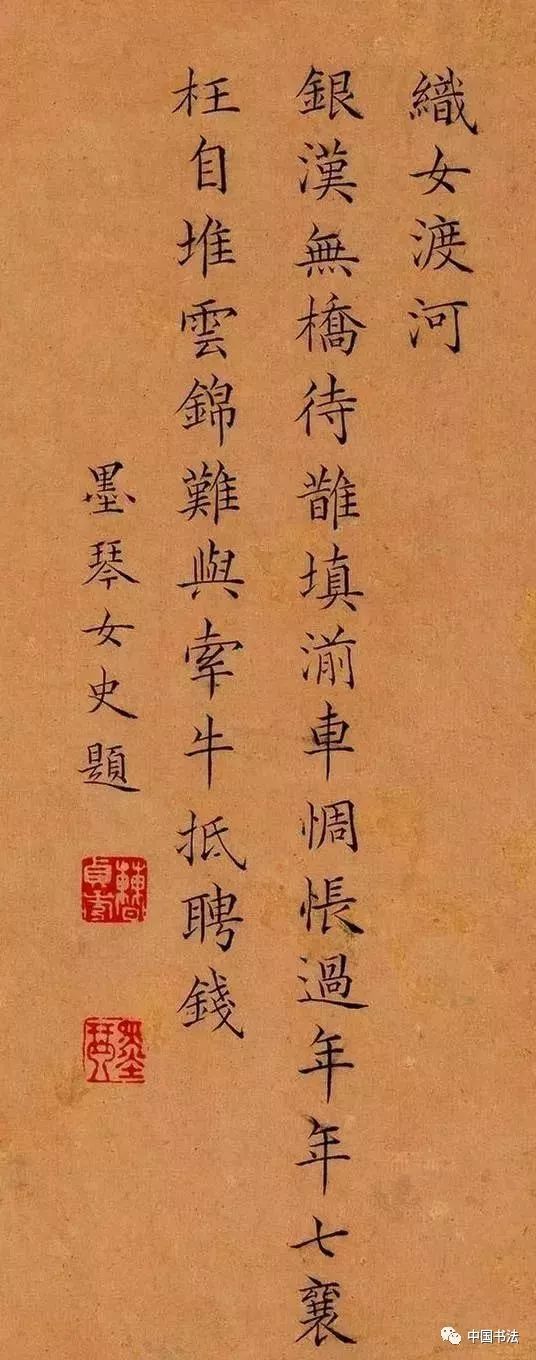 織女渡河
銀漢無橋待鵲填湔車惆悵過年年七襄
枉自堆雲錦難與牽牛抵聘錢
墨琴女史題
墨琴
中国书法